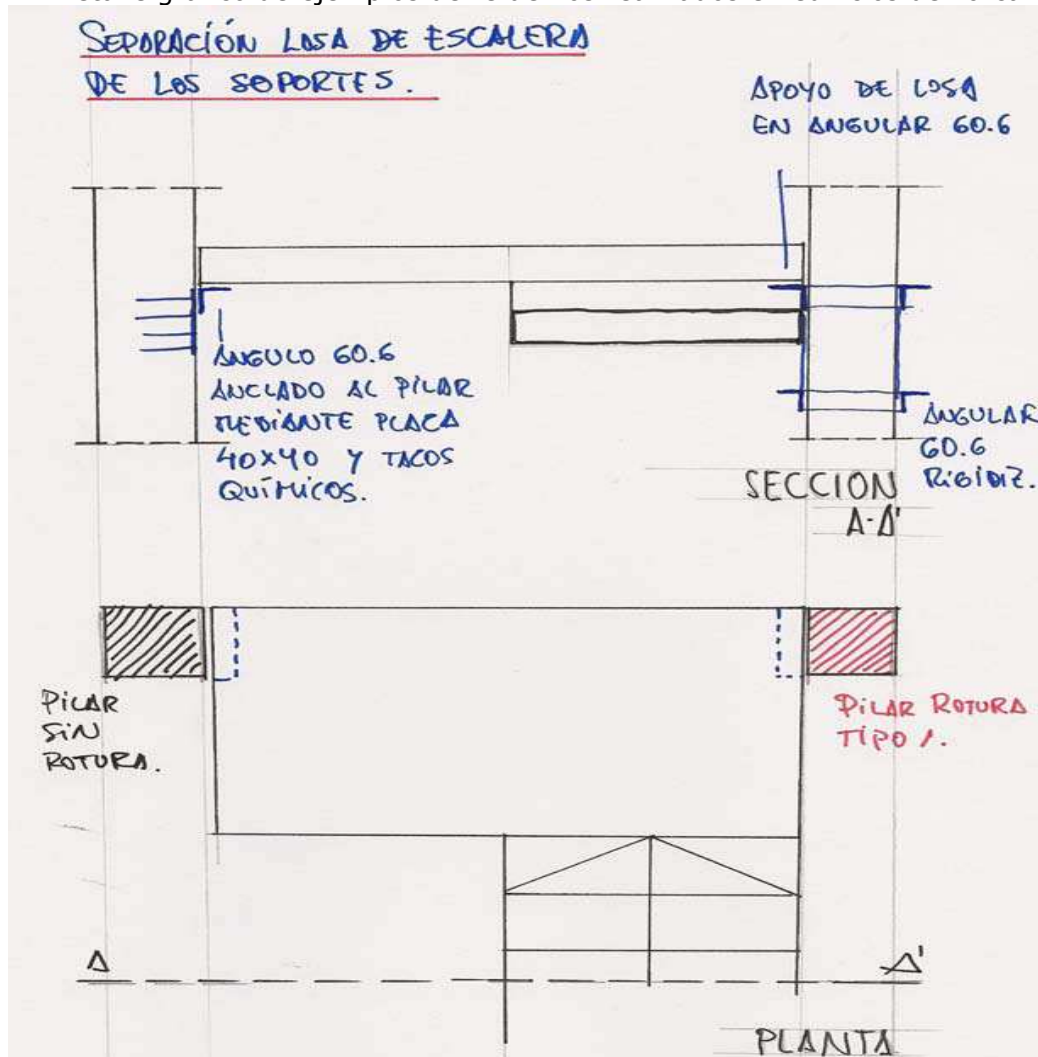 SEPARACIÓN LOSA DE ESCALERA
DE LOS SOPORTES.
APOYO DE LOSA
EN ANGULAR 60.6
ÁNGULO 60.6
ANCLADO AL PILAR
MEDIANTE PLACA
40x40 Y TACOS
QUÍMICOS.
ANGULAR
60.6
RIGIDIZ.
SECCION
A-A'
PILAR
SIN
ROTURA.
PILAR ROTURA
TIPO 1.
A
A'
PLANTA